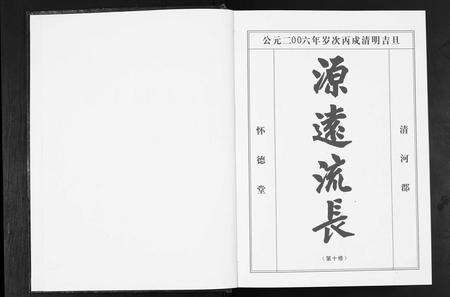 公元二00六年岁次丙戌清明吉旦
清河郡
源遠流長
(第十修)
怀德堂